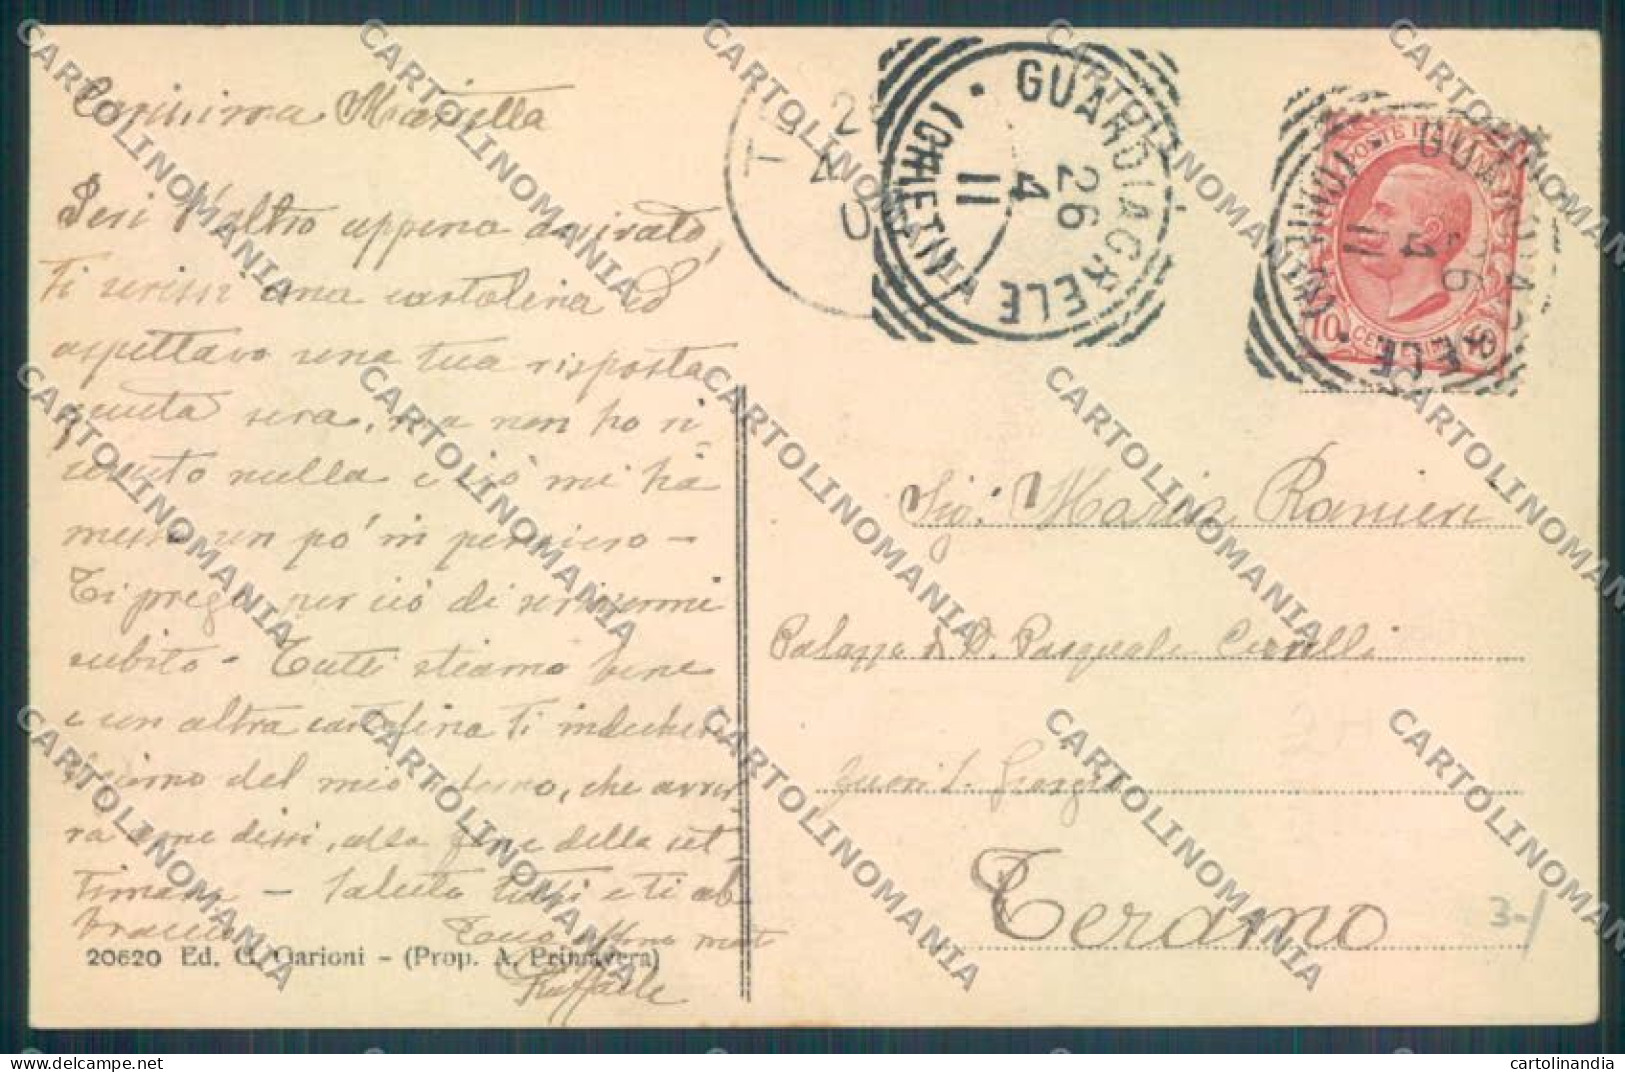 Carissima Mariella
Ieri l'altro appena arrivato,
ti scrissi una cartolina ed
aspettavo una tua risposta
questa sera, ma non ho ri-
cevuto nulla e ciò mi ha
messo un po' in pensiero -
Ti prego per ciò di scrivermi
subito - Tutti stiamo bene
e con altra cartolina ti indicherò
il giorno del mio ritorno, che avver-
rà come dissi, alla fine della set-
timana - Saluta tutti e ti ab
braccio
Tuo affmo
Raffaele
20620 Ed. G. Garioni - (Prop. A. Primavera)
GUARDIAGRELE
(CHIETI)
26
4
11
GUARDIAGRELE
26
4
11
POSTE ITALIANE
10 CENTESIMI 10
Sig. Maria Ranieri
Palazzo di D. Pasquale Cerulli
fuori S. Giorgio
Teramo
3-
CARTOLINOMANIA
www.cartolinomania.com
cartolinandia